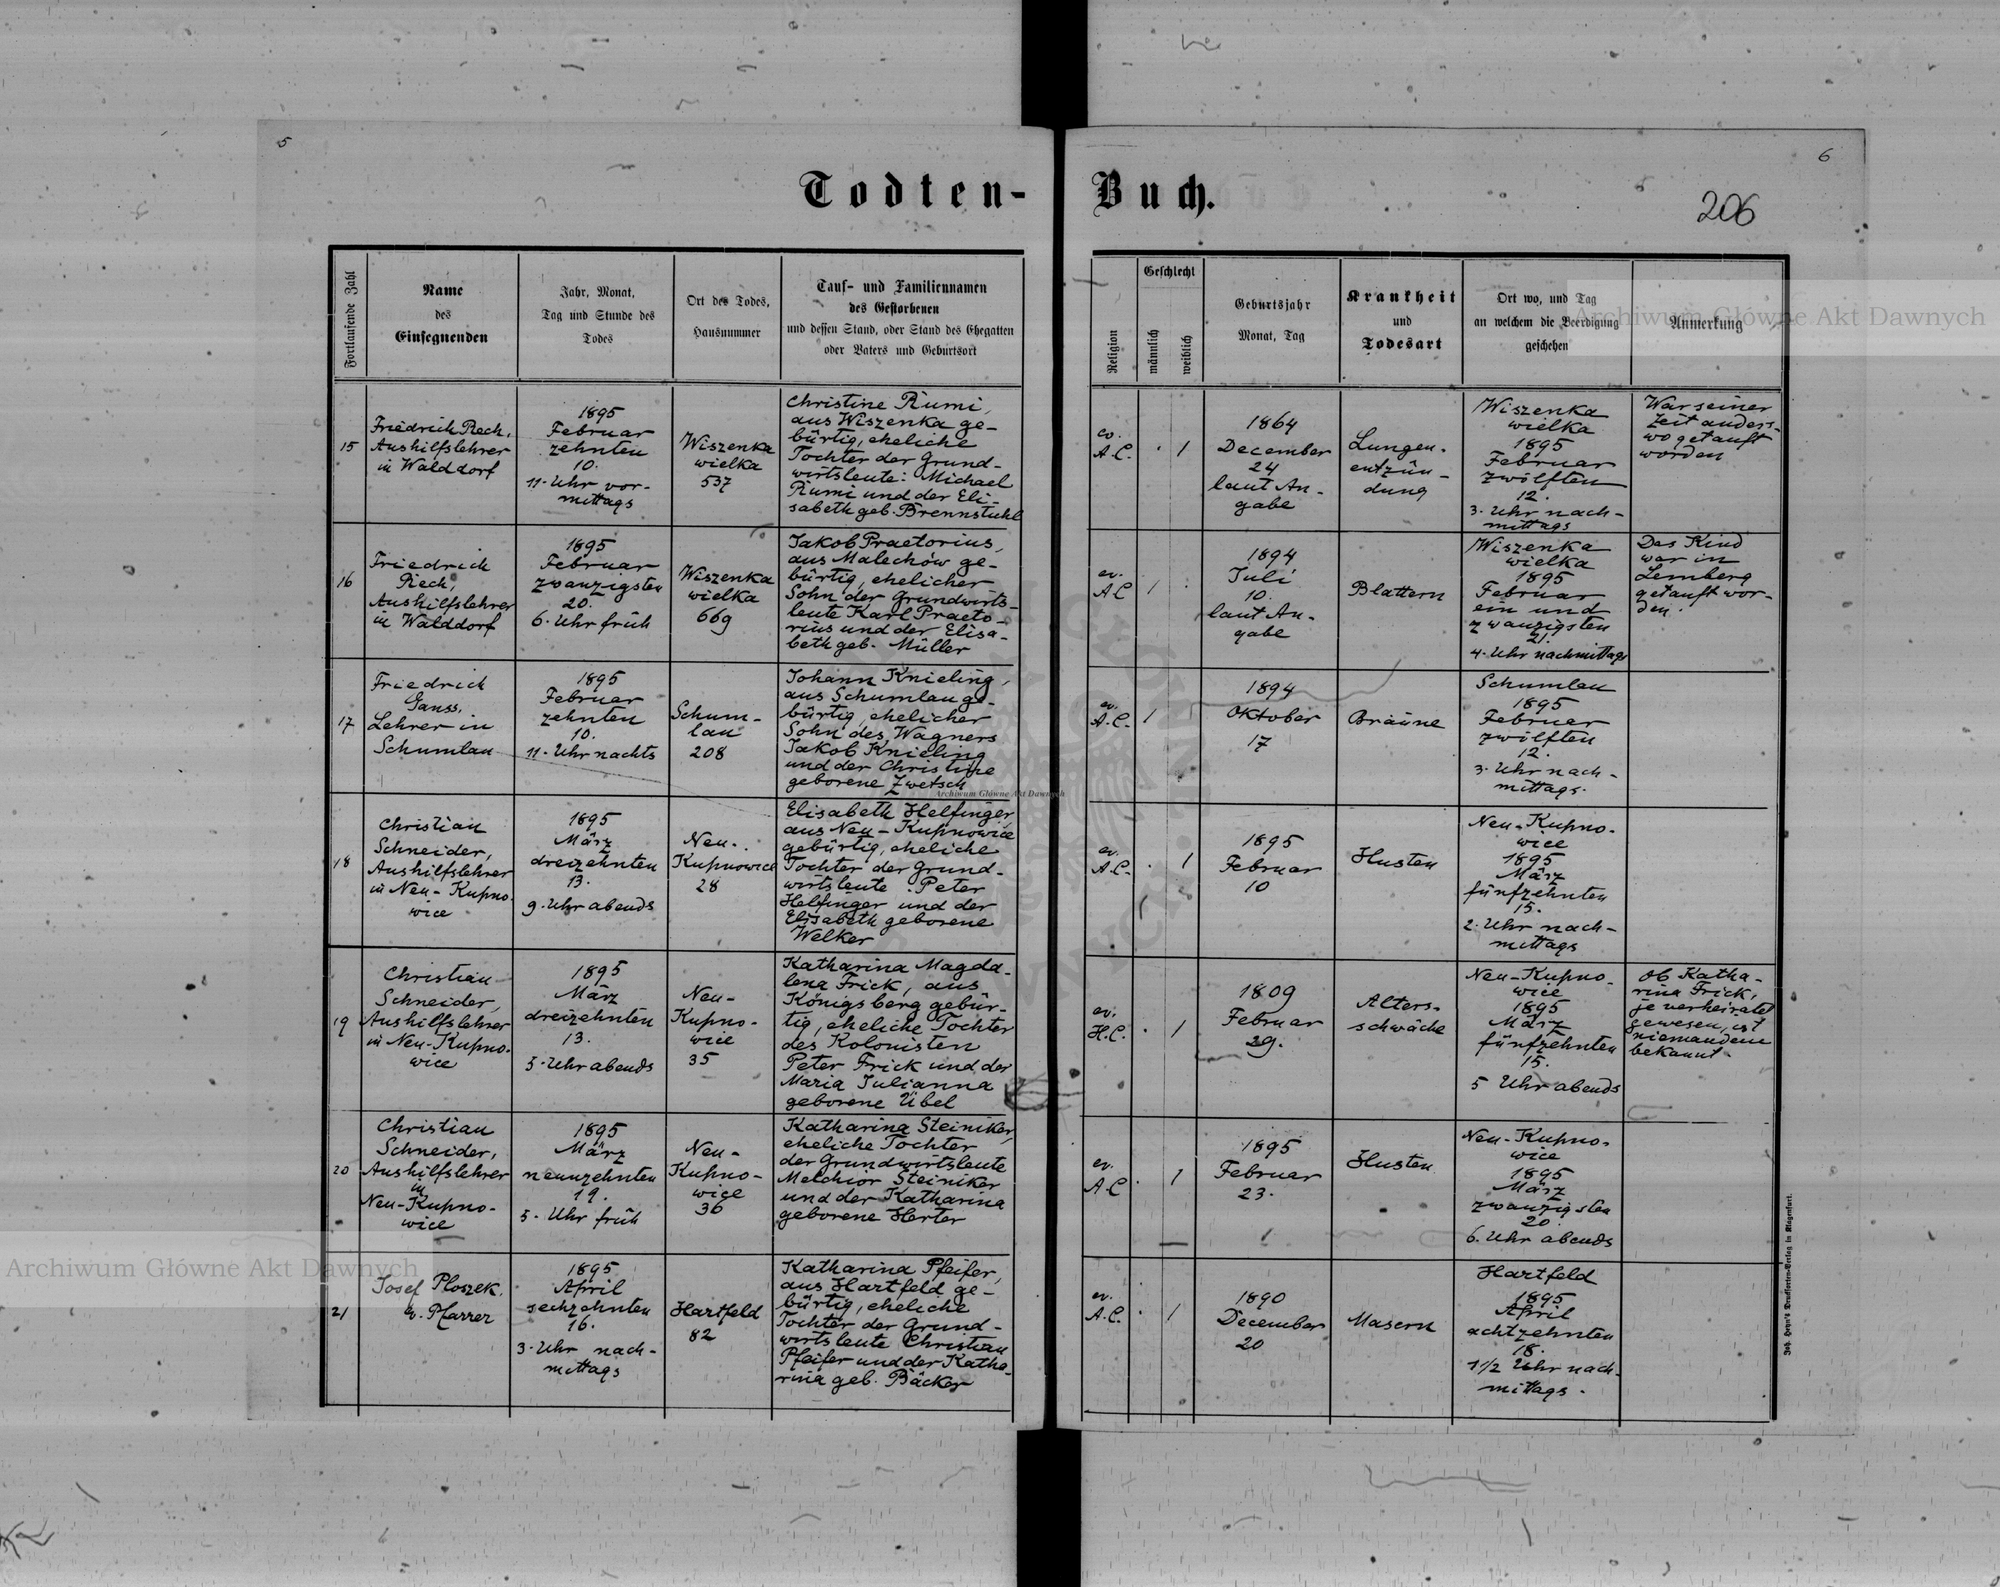 5
6
Todten-Buch.
206
Fortlaufende Zahl
Name
des
Einsegnenden
Jahr, Monat,
Tag und Stunde des
Todes
Ort des Todes,
Hausnummer
Tauf- und Familiennamen
des Gestorbenen
und dessen Stand, oder Stand des Ehegatten
oder Vaters und Geburtsort
Religion
Geschlecht
männlich
weiblich
Geburtsjahr
Monat, Tag
Krankheit
und
Todesart
Ort wo, und Tag
an welchem die Beerdigung
geschehen
Anmerkung
15
Friedrich Rech,
Aushilfslehrer
in Walddorf
1895
Februar
zehnten
10.
11- Uhr vor-
mittags
Wiszenka
wielka
537
Christine Rumi,
aus Wiszenka ge-
bürtig, eheliche
Tochter der Grund-
wirtsleute: Michael
Rumi und der Eli-
sabeth geb. Brennstuhl
ev.
A.C.
1
1864
December
24
laut An-
gabe
Lungen-
entzün-
dung
Wiszenka
wielka
1895
Februar
zwölften
12.
3. Uhr nach-
mittags
War seiner
Zeit anders-
wo getauft
worden
16
Friedrich
Rech,
Aushilfslehrer
in Walddorf
1895
Februar
zwanzigsten
20.
6. Uhr früh
Wiszenka
wielka
669
Jakob Praetorius,
aus Malechów ge-
bürtig, ehelicher
Sohn der Grundwirts-
leute Karl Praeto-
rius und der Elisa-
beth geb. Müller
ev.
A.C
1
1894
Juli
10.
laut An-
gabe
Blattern
Wiszenka
wielka
1895
Februar
ein und
zwanzigsten
21.
4. Uhr nachmittags
Das Kind
war in
Lemberg
getauft wor-
den.
17
Friedrich
Ganss,
Lehrer in
Schumlau
1895
Februar
zehnten
10.
11- Uhr nachts
Schum-
lau
208
Johann Knieling,
aus Schumlau ge-
bürtig, ehelicher
Sohn des Wagners
Jakob Knieling
und der Christine
geborene Zwetsch
ev.
A.C.
1
1894
Oktober
17
Bräune
Schumlau
1895
Februar
zwölften
12.
3. Uhr nach-
mittags.
18
Christian
Schneider,
Aushilfslehrer
in Neu-Kupno-
wice
1895
März
dreizehnten
13.
9. Uhr abends
Neu-
Kupnowice
28
Elisabeth Helfinger
aus Neu-Kupnowice
gebürtig, eheliche
Tochter der Grund-
wirtsleute Peter
Helfinger und der
Elisabeth geborene
Welker
ev.
A.C.
1
1895
Februar
10
Husten
Neu-Kupno-
wice
1895
März
fünfzehnten
15.
2. Uhr nach-
mittags
19
Christian
Schneider,
Aushilfslehrer
in Neu-Kupno-
wice
1895
März
dreizehnten
13.
5. Uhr abends
Neu-
Kupno-
wice
35
Katharina Magda-
lena Frick, aus
Königsberg gebür-
tig, eheliche Tochter
des Kolonisten
Peter Frick und der
Maria Julianna
geborene Übel
ev.
H.C.
1
1809
Februar
Alters-
schwäche
Neu-Kupno-
wice
1895
März
fünfzehnten
15.
5 Uhr abends
Ob Katha-
rina Frick,
je verheiratet
gewesen, ist
niemandem
bekannt.
20
Christian
Schneider,
Aushilfslehrer
in
Neu-Kupno-
wice
1895
März
neunzehnten
19.
5. Uhr früh
Neu-
Kupno-
wice
36
Katharina Steiniker,
eheliche Tochter
der Grundwirtsleute
Melchior Steiniker
und der Katharina
geborene Herter
ev.
A.C
1
1895
Februar
23.
Husten
Neu-Kupno-
wice
1895
März
zwanzigsten
20.
6. Uhr abends
21
Josef Ploszek,
ev. Pfarrer
1895
April
sechzehnten
16.
3. Uhr nach-
mittags
Hartfeld
82
Katharina Pfeifer,
aus Hartfeld ge-
bürtig, eheliche
Tochter der Grund-
wirtsleute Christian
Pfeifer und der Katha-
rina geb. Bäcker
ev.
A.C.
1
1890
December
20
Masern
Hartfeld
1895
April
achtzehnten
18.
1 1/2 Uhr nach-
mittags.
Joh. Heyn's Drucksorten-Verlag in Klagenfurt.
Archiwum Główne Akt Dawnych
Archiwum Główne Akt Dawnych
Archiwum Główne Akt Dawnych